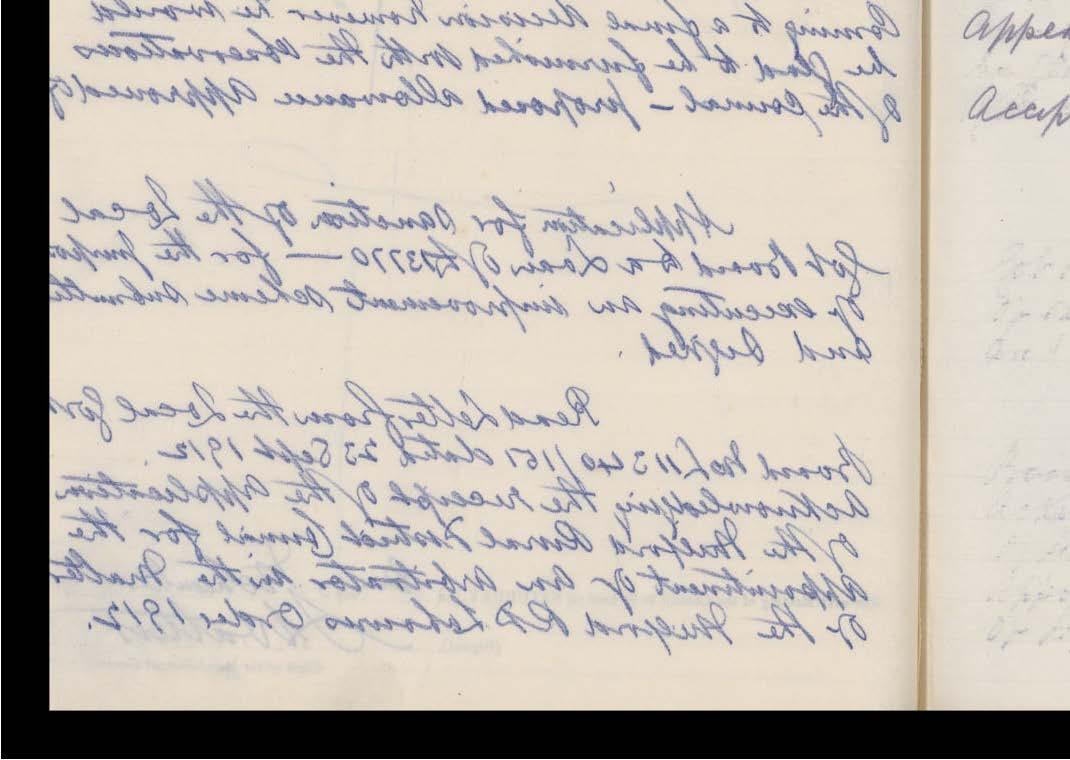 Coming to a final decision however he would
be glad to be furnished with the observations
of the Council – proposed allowance approved of
Application for sanction of the Local
Gov Board to a Loan of £13770 — for the purpose
of executing an improvement scheme submitted
and signed.
Read Letter from the Local Govt
Board No L 11340/151 dated 23 Sept 1912.
acknowledging the receipt of the application
of the Milford Rural District Council for the
appointment of an arbitrator in the matter
of the Milford RD Labourers Order 1912.